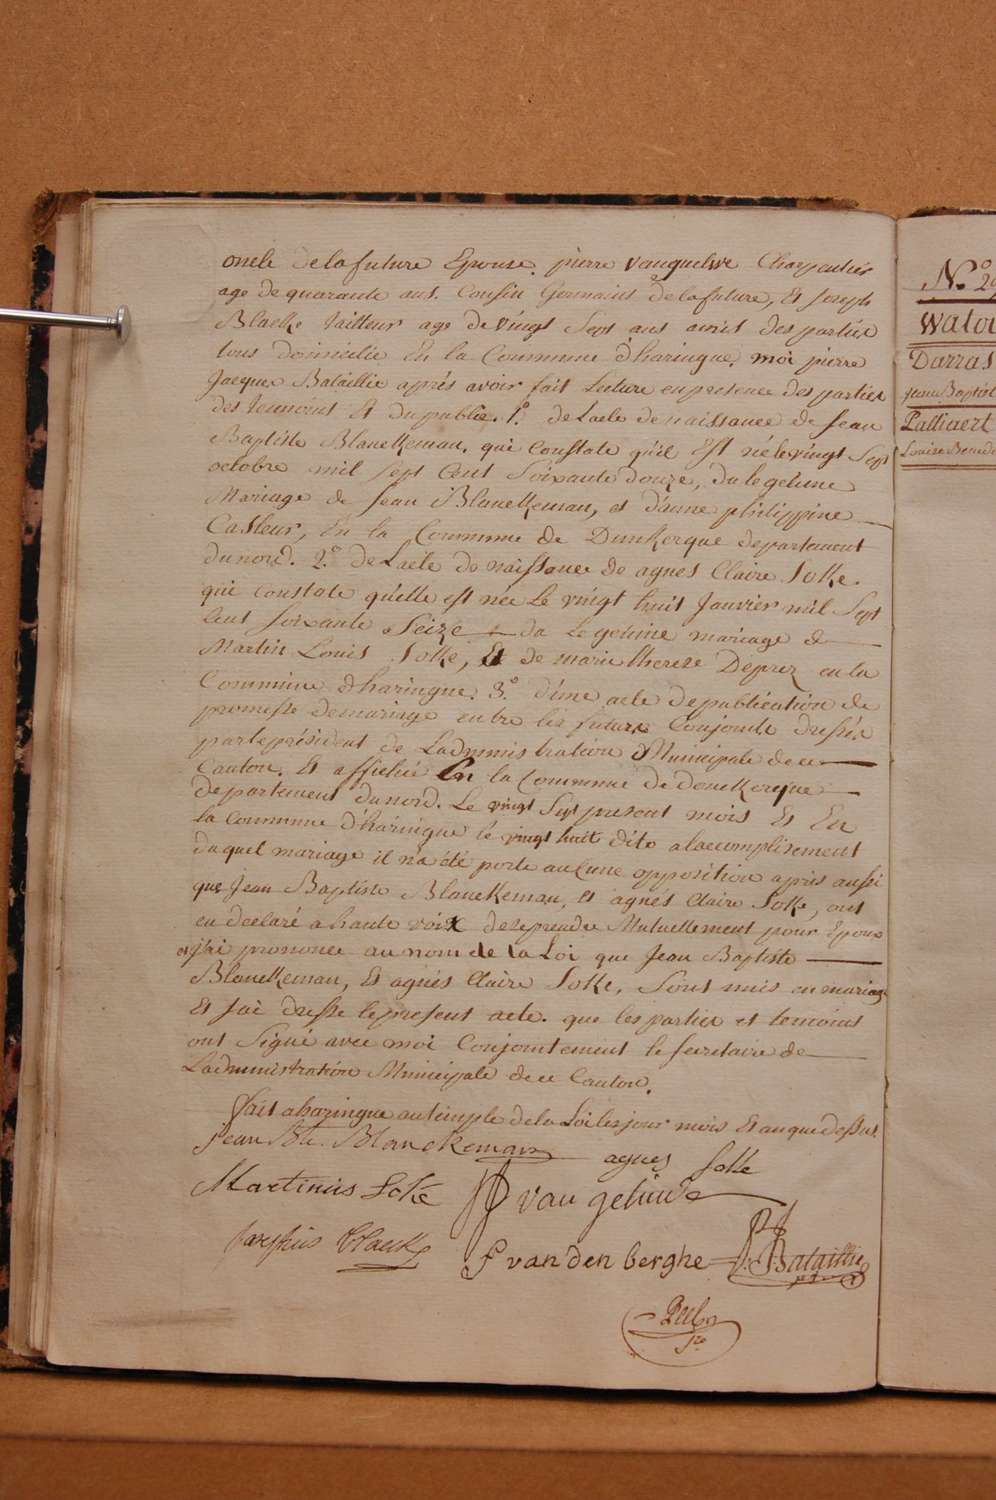 oncle de la future Epouse. pierre vanquelwe Charpentier
age de quarante ans. Cousin Germains de la future, Et Joseph
Blaeke tailleur age de vingt Sept ans amis des partie
tous domicilie En la Commune d'haringue. moi pierre
Jacques Bataillie aprés avoir fait Lecture en presence des parties
des temoins Et du public. 1.° de Lacte de naissance de Jean
Baptiste Blanckeman. qui Constate qu'il Est né le vingt Sept
octobre mil sept Cent Soixante douze, du legetime
Mariage de Jean Blanckeman, et d'anne philippine
Casteur, En la Commune de Dunkerque departement
du nord. 2.° de Lacte de naissance de agnes Claire Soke.
qui constate qu'elle est née Le vingt huit Janvier mil Sept
Cent Soixante Seize du Legetime mariage de
Martin Louis Soke, Et de marie therese Deprez en la
Commune d'haringue. 3.° d'une acte de publication de
promesse de mariage entre les futurs Conjoints dressée
par le président de Ladmmistration Municipale de ce
Canton. Et affichée En la Commune de donckerque
departement du nord. Le vingt Sept present mois Et En
la Commune d'haringue le vingt huit dito a laccomplisement
du quel mariage il n'a été porte aucune opposition aprés aussi
que Jean Baptiste Blanckeman, Et agnés Claire Soke, ont
eu declaré a haute voix de se prendre Mutuellement pour Epoux
et j'ai prononcé au nom de la Loi que Jean Baptiste
Blanckeman, Et agnés Claire Soke, Sont unis en mariage
Et Jai dresse le present acte. que les parties et temoins
ont Signé avec moi Conjointement le Secretaire de
Ladministration Municipale de ce Canton.
fait a haringue au temple de la Loi les jour mois Et an que dessus.
jean Bte. Blanckeman agnes Soke
Martinus Soke van geluwe
Josephus Blaeke P van den berghe P. J. Bataillie
N.° 29
Watou
Darras
Jean Baptist
Pattieert
Louise Bened